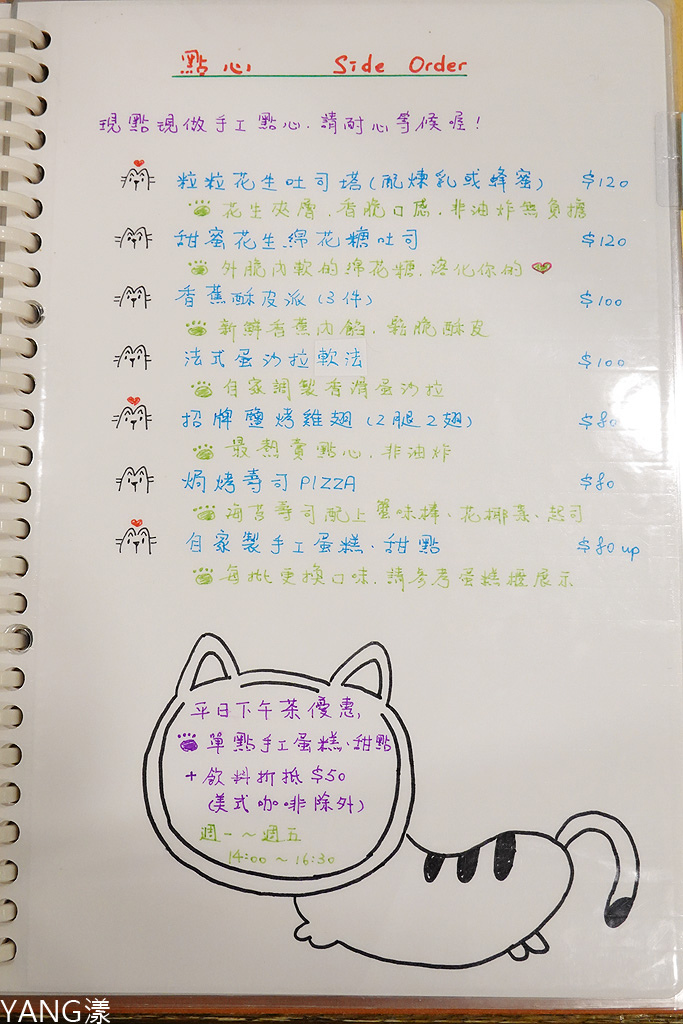 點心 Side Order
現點現做手工點心.請耐心等候喔!
粒粒花生吐司塔(配煉乳或蜂蜜) $120
花生夾層.香脆口感.非油炸無負擔
甜蜜花生綿花糖吐司 $120
外脆內軟的綿花糖.溶化你的
香蕉酥皮派(3件) $100
新鮮香蕉內餡.鬆脆酥皮
法式蛋沙拉軟法 $100
自家調製香滑蛋沙拉
招牌鹽烤雞翅(2腿2翅) $80
最熱賣點心.非油炸
焗烤壽司PIZZA $80
海苔壽司配上蟹味棒、花椰菜、起司
自家製手工蛋糕、甜點 $80 up
每批更換口味.請參考蛋糕櫃展示
平日下午茶優惠,
單點手工蛋糕、甜點
+飲料折抵$50
(美式咖啡除外)
週一~週五
14:00~16:30
YANG漾